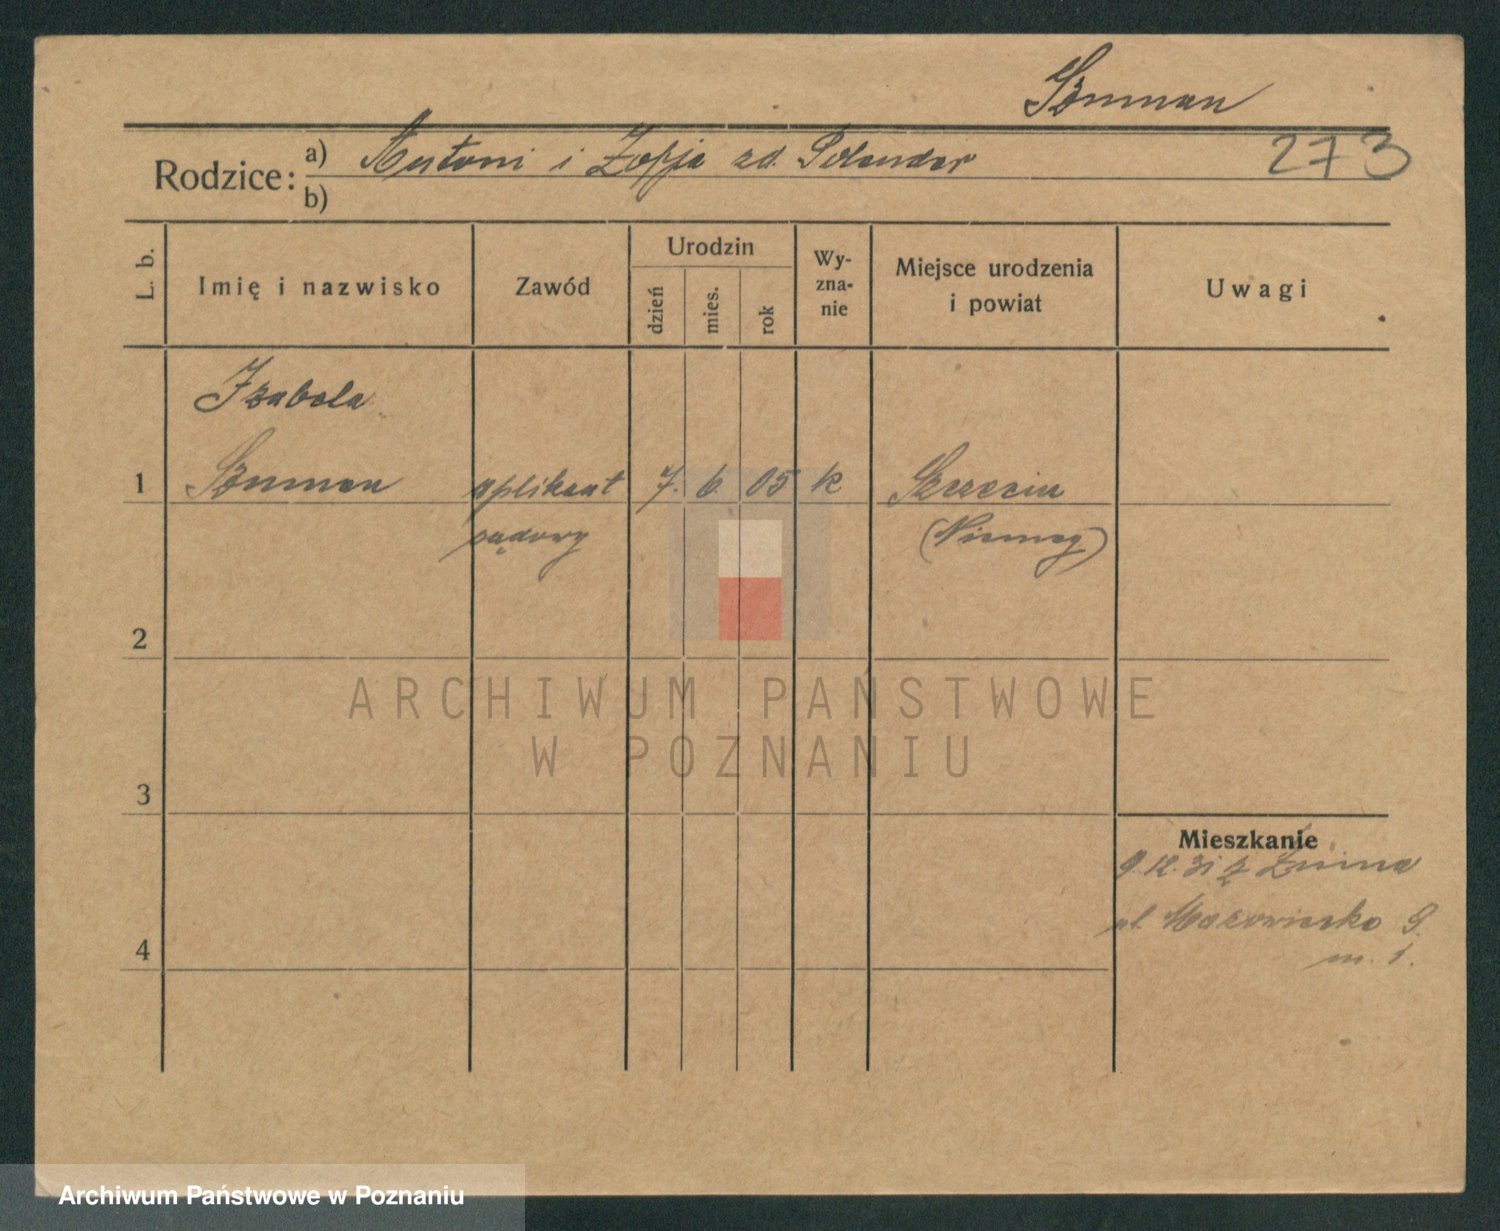 Szuman
273
Rodzice: a) Antoni i Zofja zd. Polender
b)
L. b.
Imię i nazwisko
Zawód
Urodzin
dzień
mies.
rok
Wy-
zna-
nie
Miejsce urodzenia
i powiat
Uwagi
Izabela
1 Szuman aplikant 7. 6. 05 k Szczecin
sądowy (Niemcy)
2
3
4
ARCHIWUM PAŃSTWOWE
W POZNANIU
Mieszkanie
9.12.31 z Żnina
ul. Mazowiecka
m. 1.
Archiwum Państwowe w Poznaniu